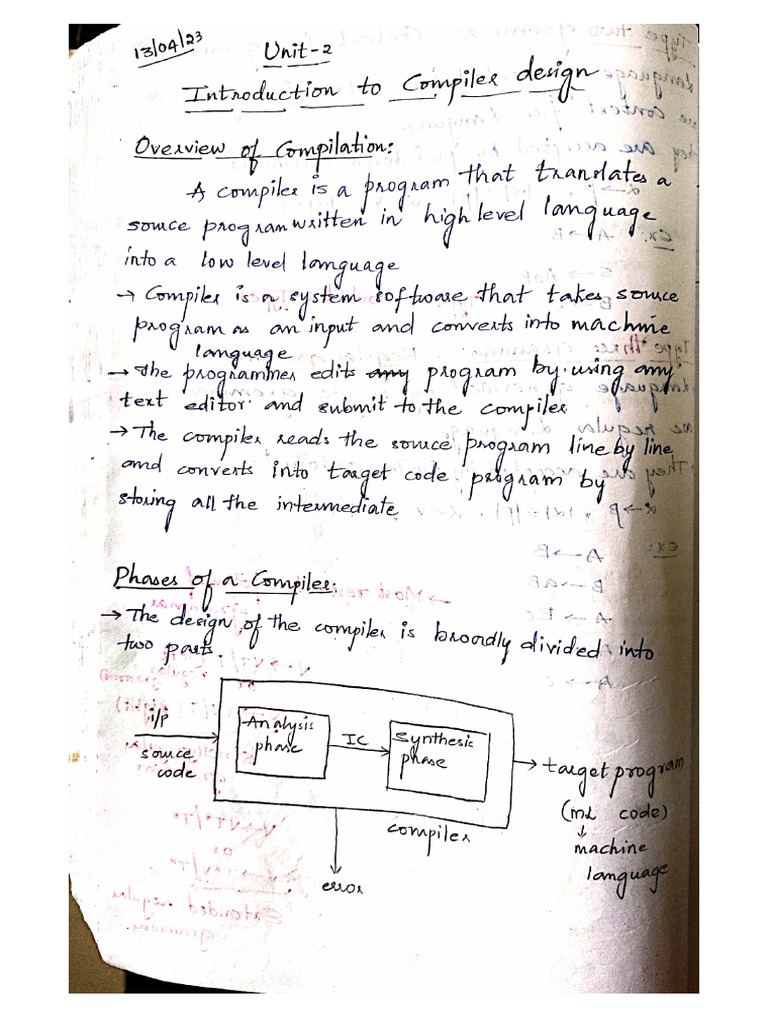 13/04/23
Unit-2
Introduction to Compiler design
Overview of Compilation:
A compiler is a program that tranlates a
source program written in high level language
into a low level language
→ Compiler is a system software that takes source
program as an input and converts into machine
language
→ The programmer edits any program by using any
text editor and submit to the compiler
→ The compiler reads the source program line by line
and converts into target code program by
storing all the intermediate
Phases of a Compiler:
→ The design of the compiler is broadly divided into
two parts.
i/p
source
code
Analysis
phase
IC
Synthesis
phase
compiler
error
target program
(ml code)
↓
machine
language